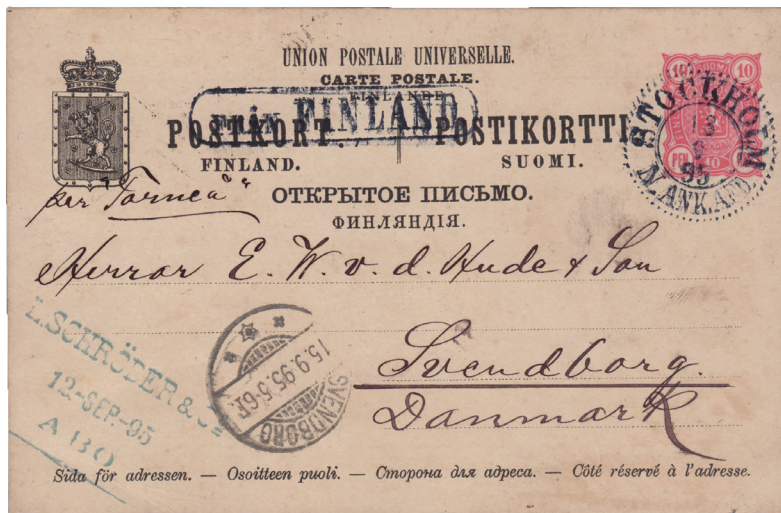 UNION POSTALE UNIVERSELLE.
CARTE POSTALE.
FINLANDE
FRÅN FINLAND
POSTKORT. POSTIKORTTI
FINLAND. SUOMI.
ОТКРЫТОЕ ПИСЬМО.
ФИНЛЯНДІЯ.
10 10
PEN. 10
STOCKHOLM
13
9
95
N. ANK. AFD.
per "Torneå"
Herrar E. W. v. d. Hude & Son
Svendborg.
Danmark
L. SCHRÖDER & Co
12-SEP.-95
ABO
15.9.95.5-6E
SVENDBORG
Sida för adressen. — Osoitteen puoli. — Сторона для адреса. — Côté réservé à l'adresse.